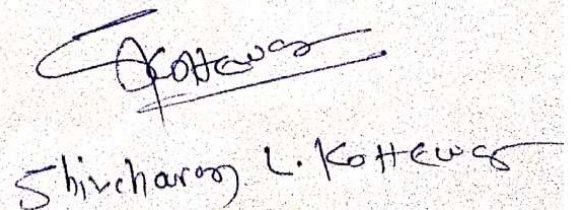 Kottewar
Shivcharan L. Kottewar